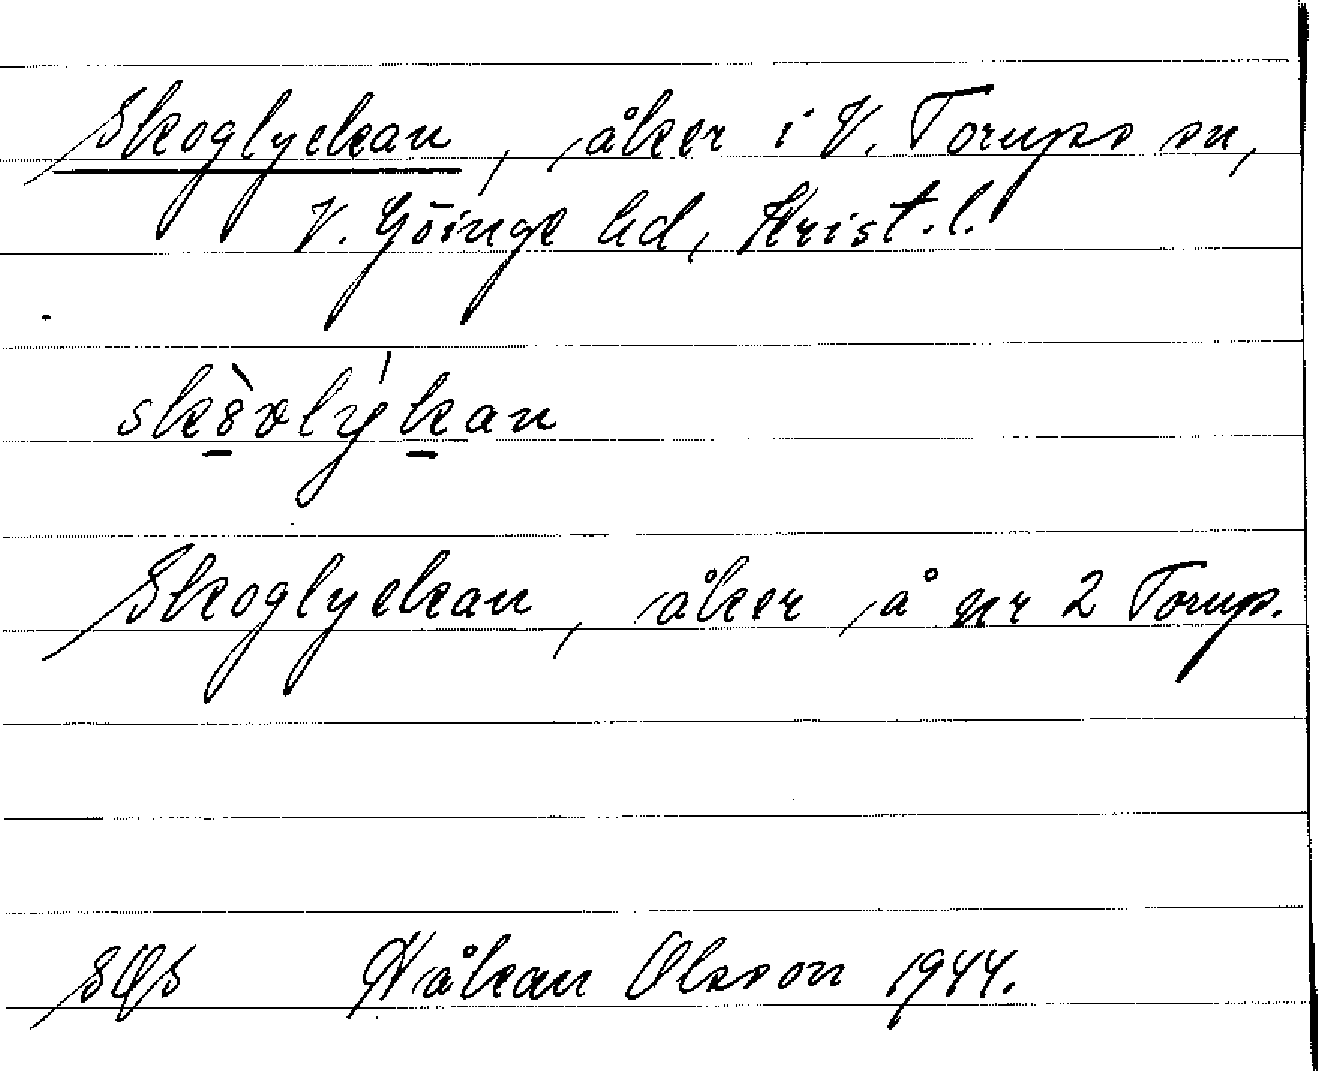 Skoglyckan, åker i V. Torups sn,
V. Göinge hd, Krist. l.
Skoglyckan, åker å nr 2 Torup.
SOS Håkan Olsson 1944.